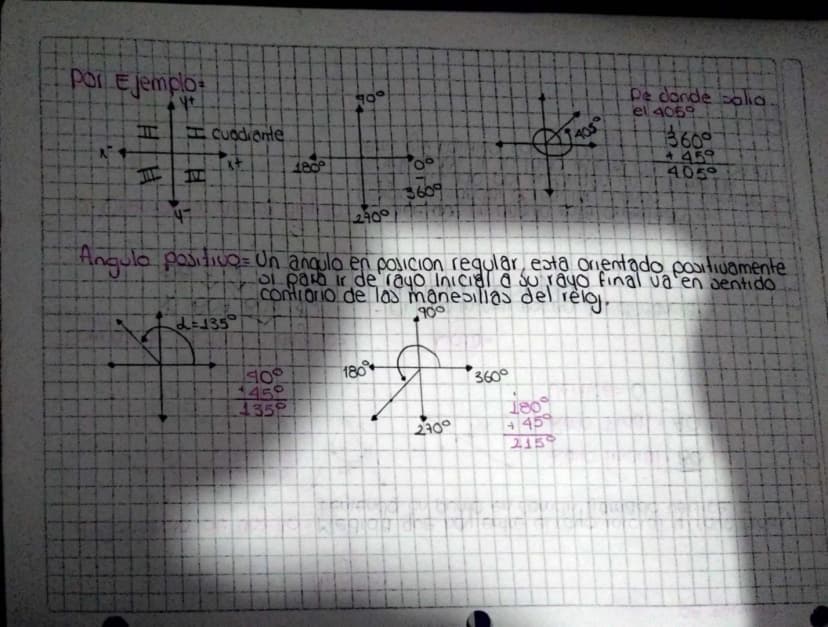 Por Ejemplo:
y+
II I cuadiante
x- x+
III IV
y-
90°
180° 0°
360°
270°
405°
De donde salio
el 405°
360°
+ 45°
405°
Angulo positivo= Un angulo en posicion regular, esta orientado positivamente
si para ir de rayo Inicial a su rayo final va en sentido
contrario de las manesillas del reloj.
α=135°
90°
+45°
135°
90°
180° 360°
270°
180°
+ 45°
215°